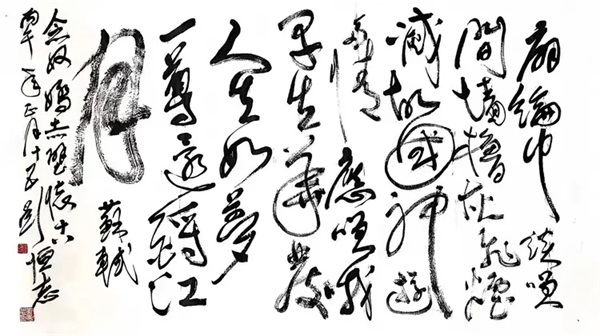 扇綸巾談笑
間檣櫓灰飛煙
滅故國神遊
多情應笑我
早生華髮
人生如夢
一尊還酹江
月
蘇軾
念奴嬌赤壁懷古
年正月十五